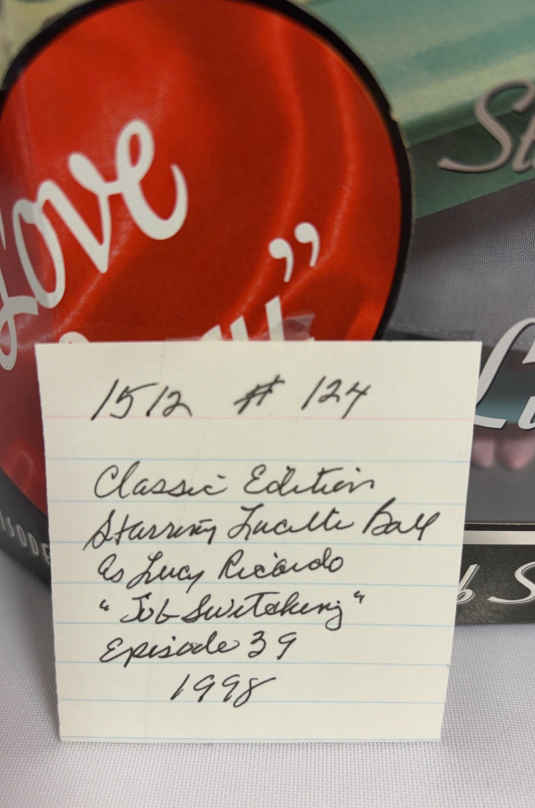 Love
”
St
Li
1512 # 124
Classic Edition
Starring Lucille Ball
as Lucy Ricardo
"Job Switching"
Episode 39
1998